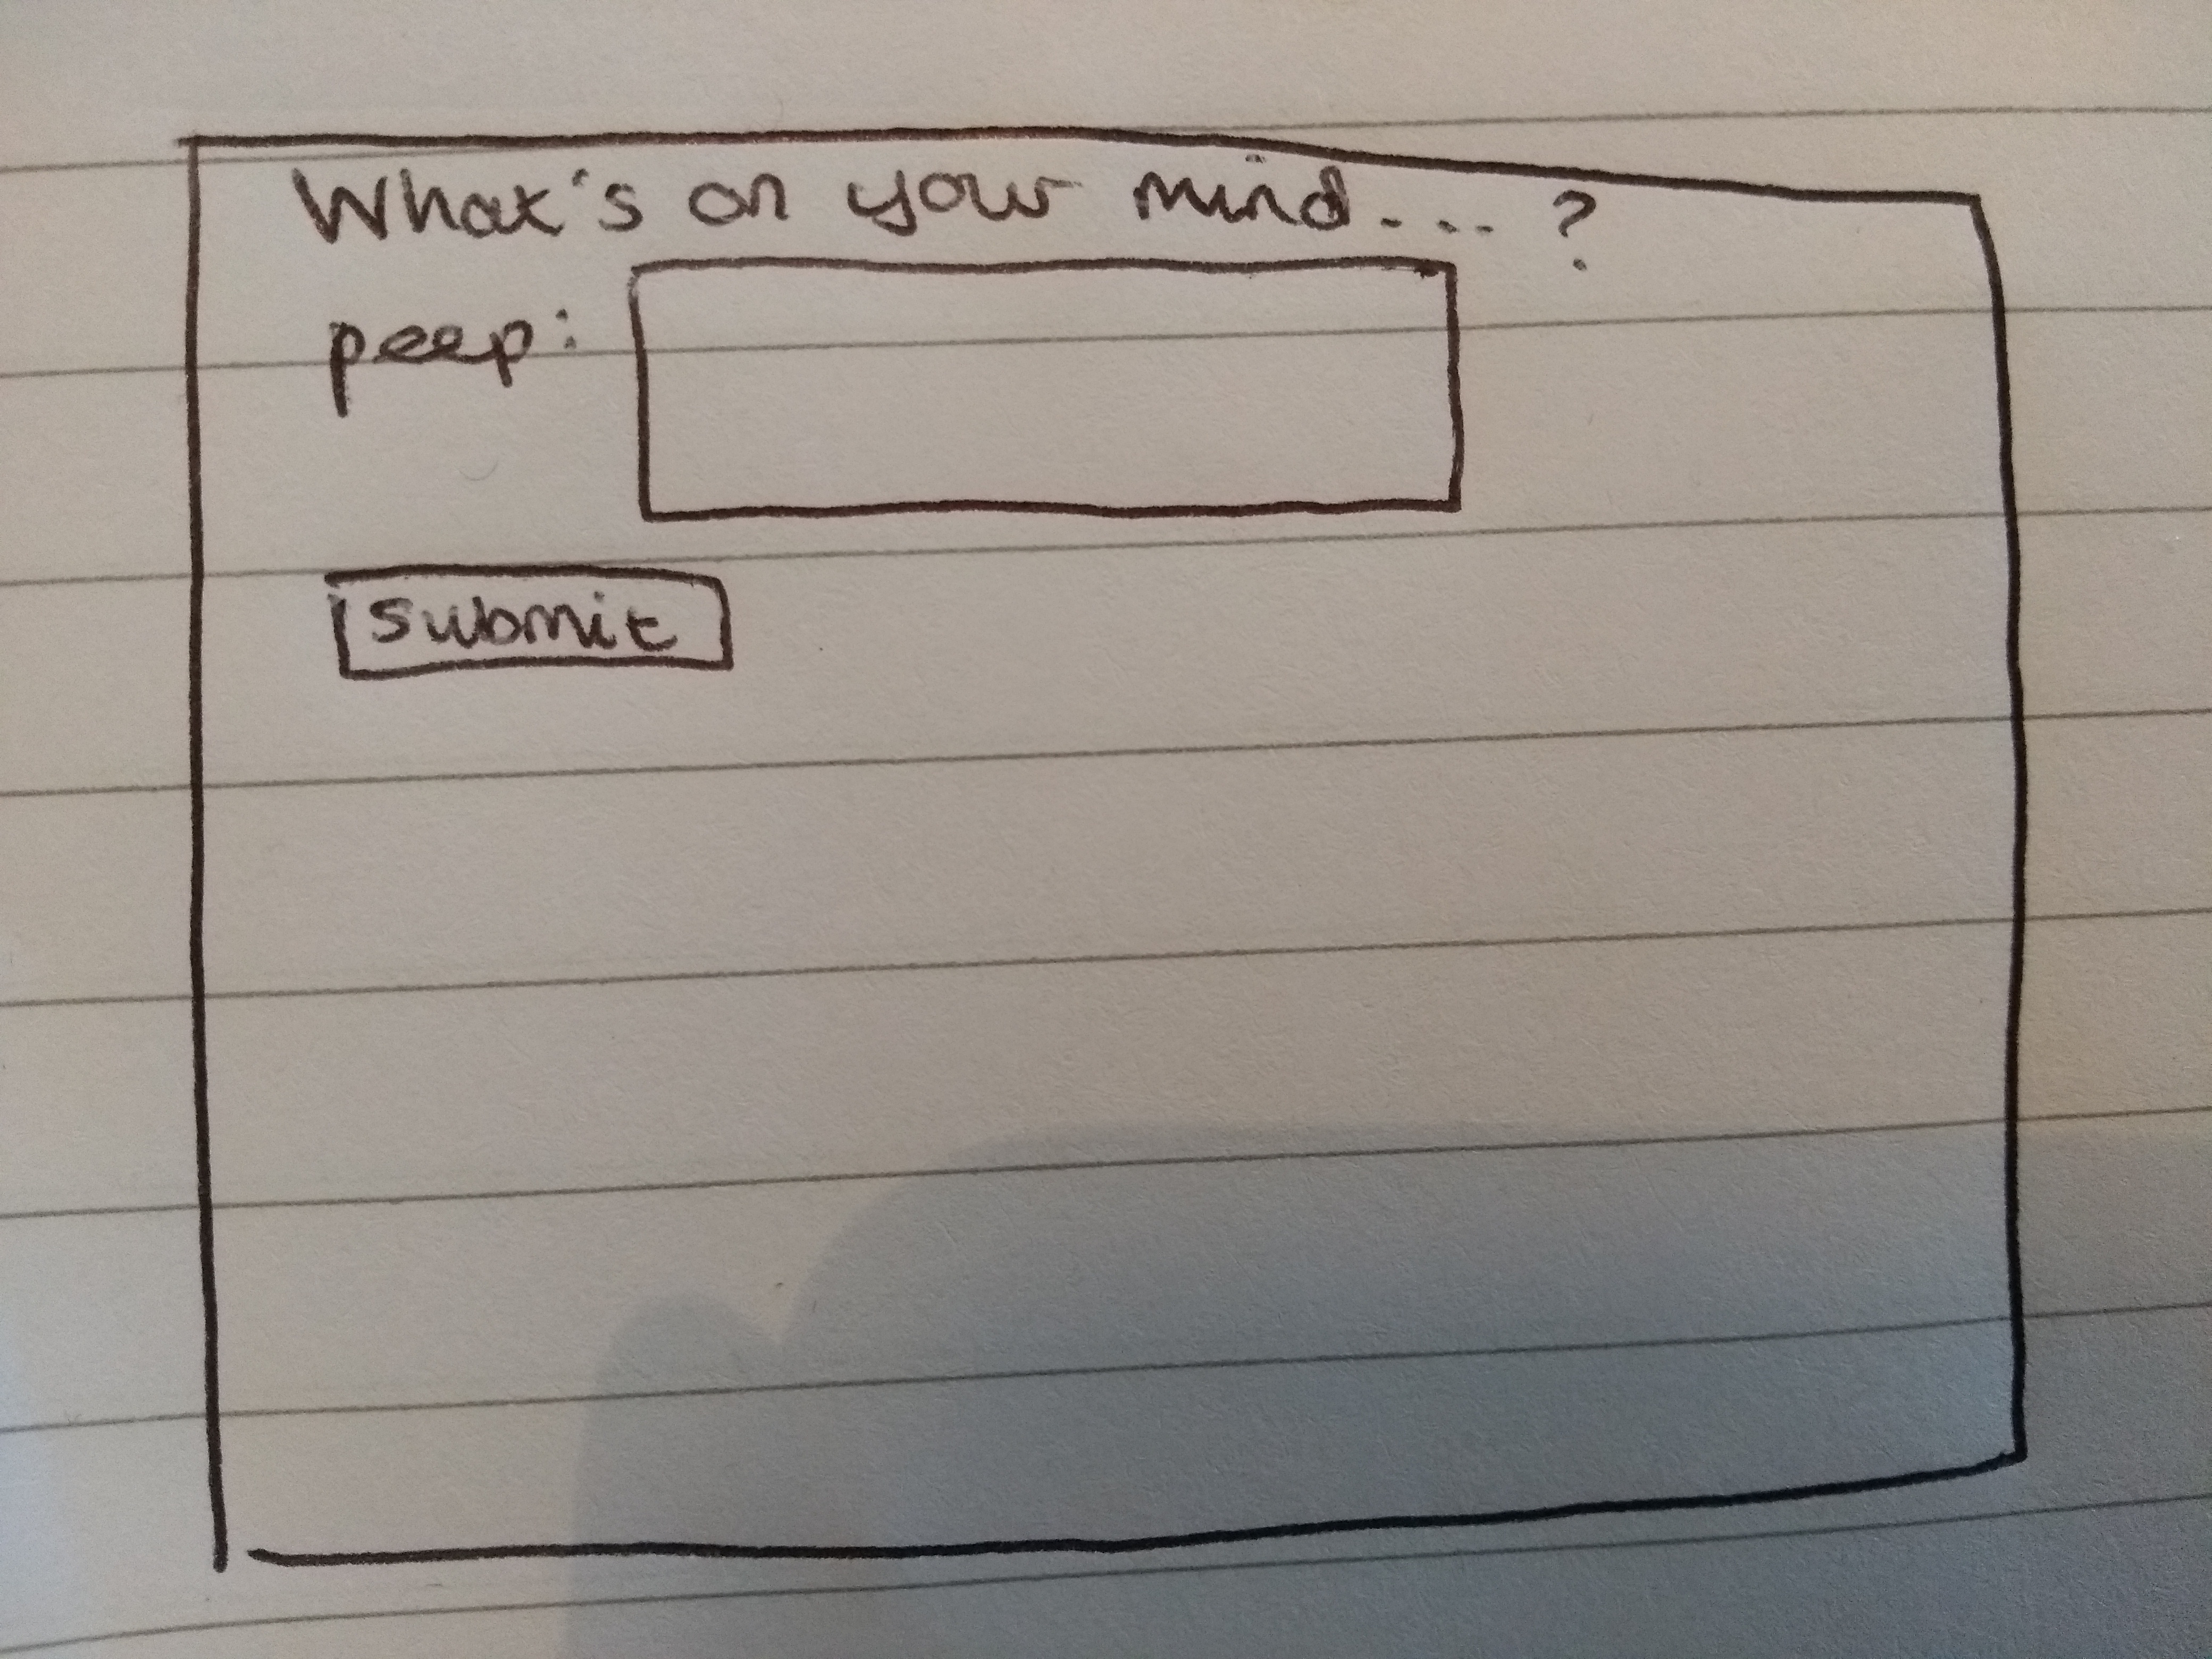 What's on your mind.... ?
peep:
submit